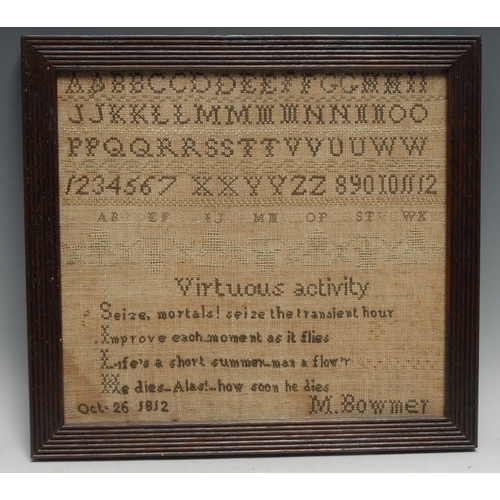 AABBCCDDEEFFGGHHII
JJKKLLMMMNNNOO
PPQQRRSSTTVVUUWW
1234567 XXYYZZ 8 9 10 11 12
AB EF IJ M OP ST WX
Virtuous activity
Seize, mortals! seize the transient hour
Improve each moment as it flies
Life's a short summer man a flow'r
He dies Alas! how soon he dies
Oct. 26 1812 M. Bowmer